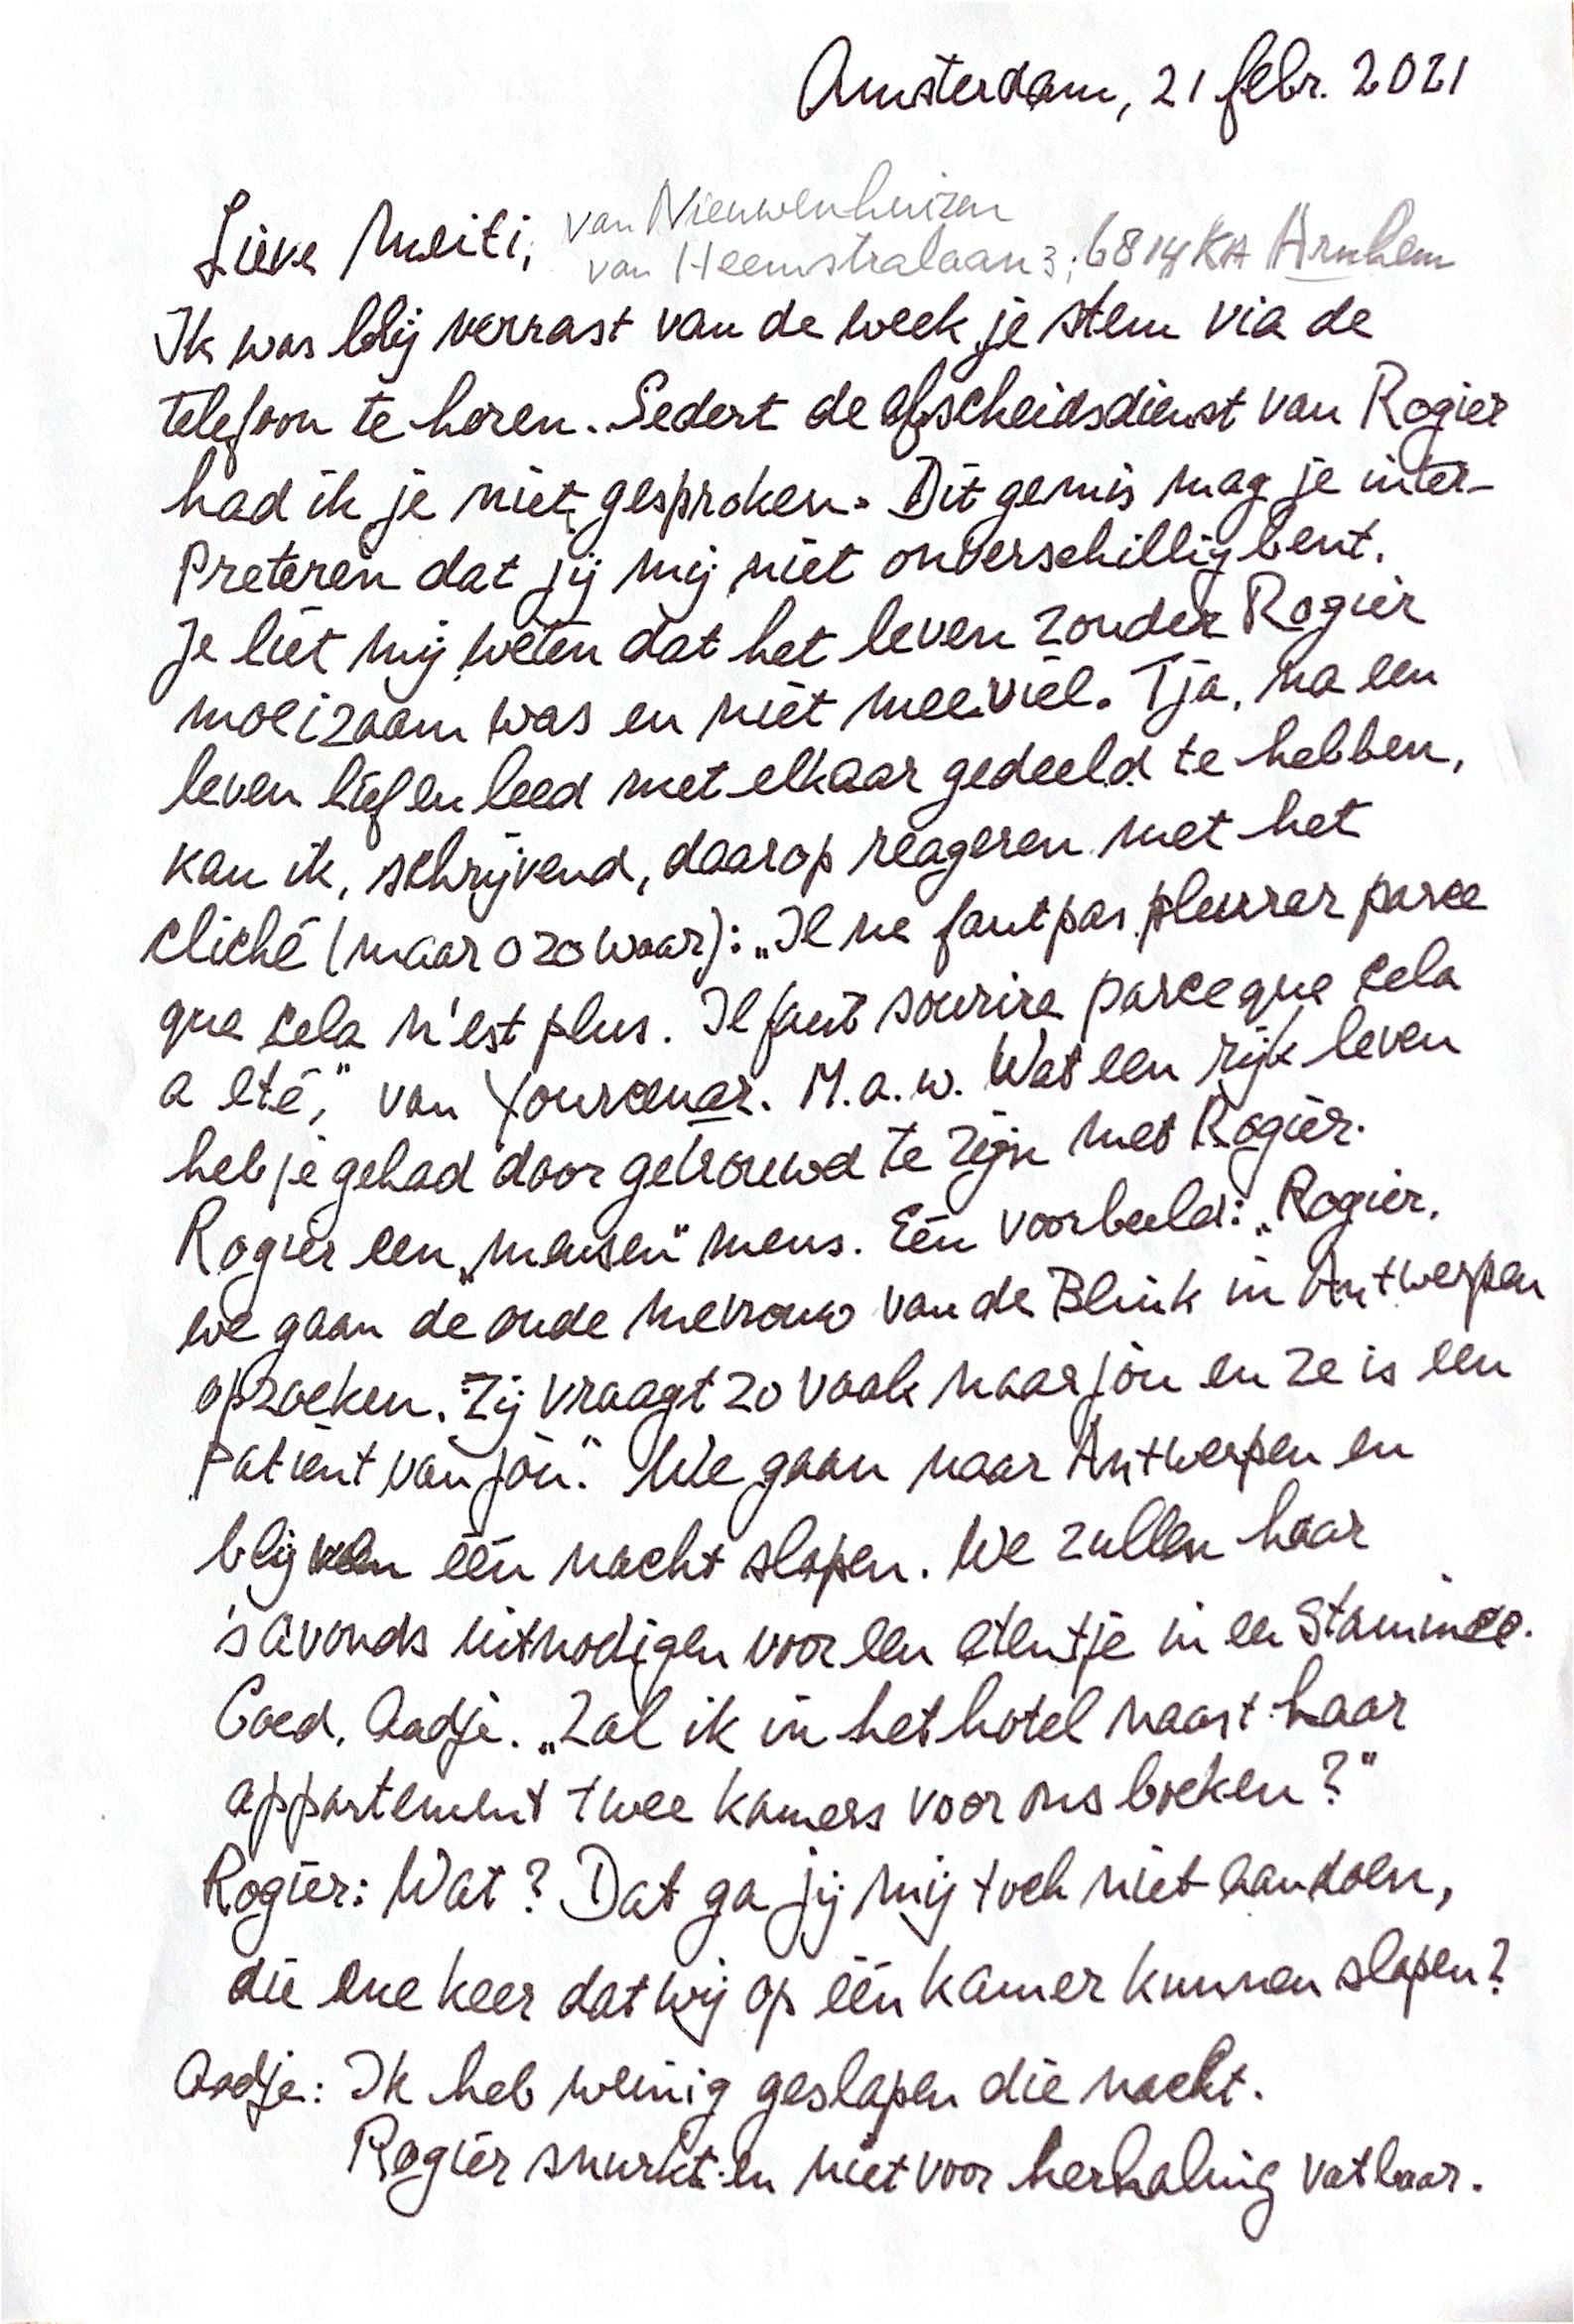 Amsterdam, 21 febr. 2021
van Nieuwenhuizen
Lieve Meiti, van Heemstralaan 3; 6814 KA Arnhem
Ik was blij verrast van de week je stem via de
telefoon te horen. Sedert de afscheidsdienst van Rogier
had ik je niet gesproken. Dit gemis mag je inter-
preteren dat jij mij niet onverschillig bent.
Je liet mij weten dat het leven zonder Rogier
moeizaam was en niet meeviel. Tja, na een
leven lief en leed met elkaar gedeeld te hebben,
kan ik, schrijvend, daarop reageren met het
cliché (maar o zo waar): „Il ne faut pas pleurer parce
que cela n'est plus. Il faut sourire parce que cela
a eté," van Yourcenar. M.a.w. Wat een rijk leven
heb je gehad door getrouwd te zijn met Rogier.
Rogier een „mensen" mens. Eén voorbeeld: „Rogier,
we gaan de oude mevrouw van de Blink in Antwerpen
opzoeken. Zij vraagt zo vaak naar jou en ze is een
patient van jou." We gaan naar Antwerpen en
blijven één nacht slapen. We zullen haar
's avonds uitnodigen voor een etentje in een Staminee.
Goed, Aadje. „Zal ik in het hotel naast haar
appartement twee kamers voor ons boeken?"
Rogier: Wat? Dat ga jij mij toch niet aandoen,
die ene keer dat wij op één kamer kunnen slapen?
Aadje: Ik heb weinig geslapen die nacht.
Rogier snurkt en niet voor herhaling vatbaar.